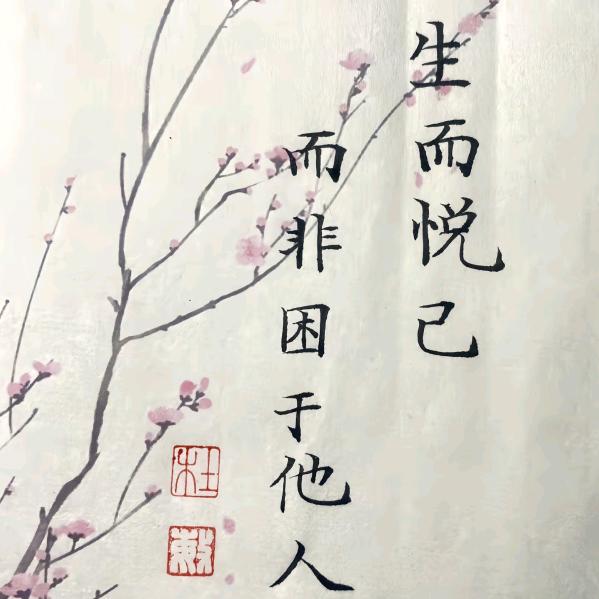 生而悦己
而非困于他人
杜